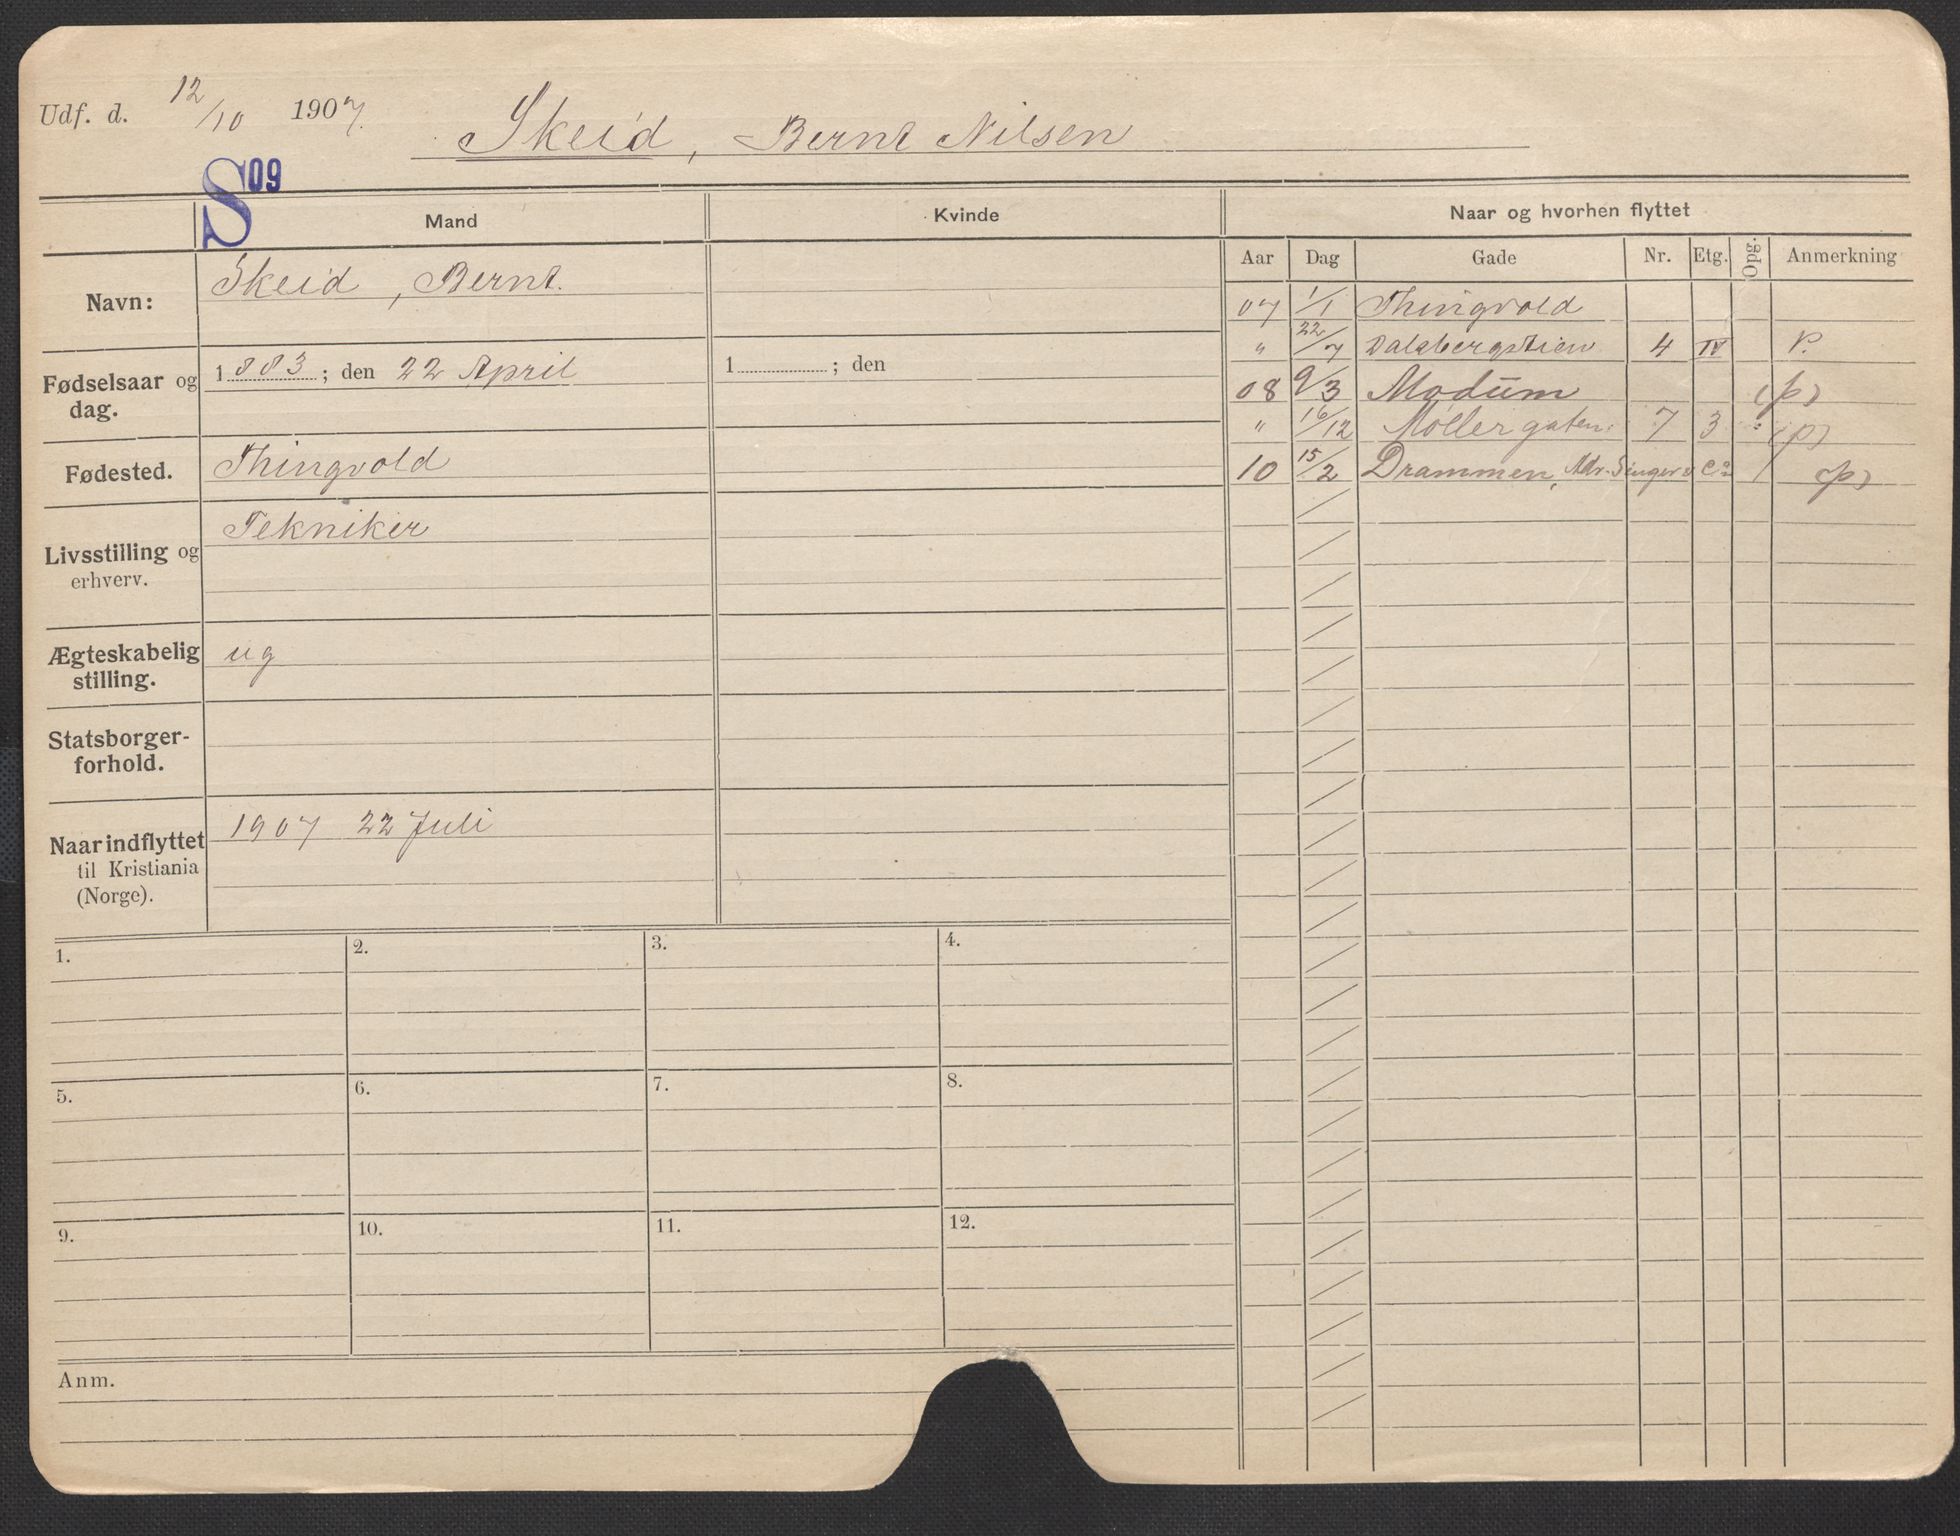 Udf. d. 12/10 1907. Skeid, Bernt Nilsen
S 09
Mand Kvinde Naar og hvorhen flyttet
Aar Dag Gade Nr. Etg. Opg. Anmerkning
Navn: Skeid, Bernt.
Fødselsaar og dag. 1883; den 22 April 1 ; den
Fødested. Thingvold
Livsstilling og erhverv. Tekniker
Ægteskabelig stilling. ug
Statsborger-forhold.
Naar indflyttet til Kristiania (Norge). 1907 22 Juli
07 1/1 Thingvold
" 22/7 Dalsbergstien 4 IV P.
08 9/3 Modum (p)
" 16/12 Møllergaten 7 3 (p)
10 15/2 Drammen, Adr. Singer & Co (p)
1. 2. 3. 4.
5. 6. 7. 8.
9. 10. 11. 12.
Anm.